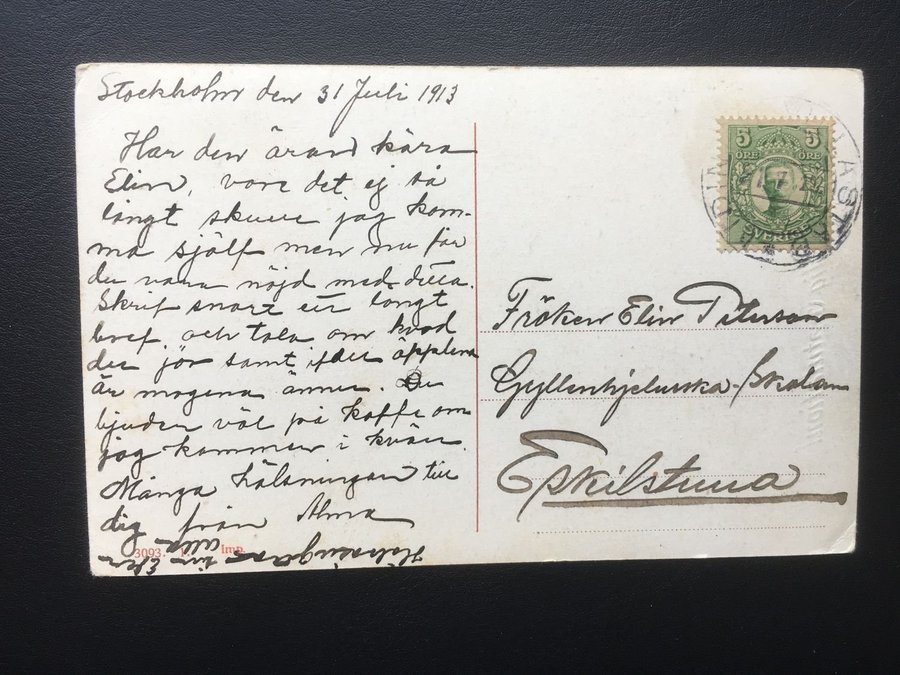 Stockholm den 31 Juli 1913
Har den äran kära
Elin, vore det ej så
långt skulle jag kom-
ma själf men nu får
du vara nöjd med detta.
Skrif snart ett långt
bref, och tala om hvad
du jör samt if du äpplena
är mogena ännu. Du
bjuder väl på kaffe om
jag kommer i kväll.
Många hälsningar till
dig från Alma
Hälsningar till
alla
3093. Imp.
5 5
ÖRE ÖRE
SVERIGE
Fröken Elin Peterson
Gyllenhjelmska-Skolan
Eskilstuna